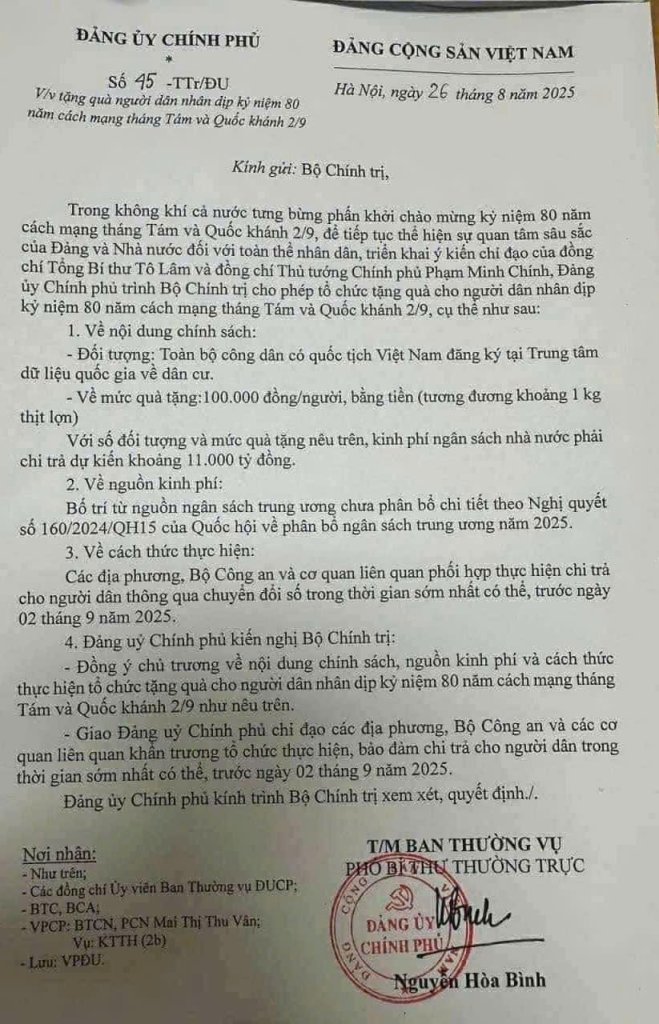 ĐẢNG ỦY CHÍNH PHỦ
*
Số 45 -TTr/ĐU
V/v tặng quà người dân nhân dịp kỷ niệm 80
năm cách mạng tháng Tám và Quốc khánh 2/9
ĐẢNG CỘNG SẢN VIỆT NAM
Hà Nội, ngày 26 tháng 8 năm 2025
Kính gửi: Bộ Chính trị,
Trong không khí cả nước tưng bừng phấn khởi chào mừng kỷ niệm 80 năm
cách mạng tháng Tám và Quốc khánh 2/9, để tiếp tục thể hiện sự quan tâm sâu sắc
của Đảng và Nhà nước đối với toàn thể nhân dân, triển khai ý kiến chỉ đạo của đồng
chí Tổng Bí thư Tô Lâm và đồng chí Thủ tướng Chính phủ Phạm Minh Chính, Đảng
ủy Chính phủ trình Bộ Chính trị cho phép tổ chức tặng quà cho người dân nhân dịp
kỷ niệm 80 năm cách mạng tháng Tám và Quốc khánh 2/9, cụ thể như sau:
1. Về nội dung chính sách:
- Đối tượng: Toàn bộ công dân có quốc tịch Việt Nam đăng ký tại Trung tâm
dữ liệu quốc gia về dân cư.
- Về mức quà tặng:100.000 đồng/người, bằng tiền (tương đương khoảng 1 kg
thịt lợn)
Với số đối tượng và mức quà tặng nêu trên, kinh phí ngân sách nhà nước phải
chi trả dự kiến khoảng 11.000 tỷ đồng.
2. Về nguồn kinh phí:
Bố trí từ nguồn ngân sách trung ương chưa phân bổ chi tiết theo Nghị quyết
số 160/2024/QH15 của Quốc hội về phân bổ ngân sách trung ương năm 2025.
3. Về cách thức thực hiện:
Các địa phương, Bộ Công an và cơ quan liên quan phối hợp thực hiện chi trả
cho người dân thông qua chuyển đổi số trong thời gian sớm nhất có thể, trước ngày
02 tháng 9 năm 2025.
4. Đảng uỷ Chính phủ kiến nghị Bộ Chính trị:
- Đồng ý chủ trương về nội dung chính sách, nguồn kinh phí và cách thức
thực hiện tổ chức tặng quà cho người dân nhân dịp kỷ niệm 80 năm cách mạng tháng
Tám và Quốc khánh 2/9 như nêu trên.
- Giao Đảng uỷ Chính phủ chỉ đạo các địa phương, Bộ Công an và các cơ
quan liên quan khẩn trương tổ chức thực hiện, bảo đảm chi trả cho người dân trong
thời gian sớm nhất có thể, trước ngày 02 tháng 9 năm 2025.
Đảng ủy Chính phủ kính trình Bộ Chính trị xem xét, quyết định./.
Nơi nhận:
- Như trên;
- Các đồng chí Ủy viên Ban Thường vụ ĐUCP;
- BTC, BCA;
- VPCP: BTCN, PCN Mai Thị Thu Vân;
Vụ: KTTH (2b)
- Lưu: VPĐU.
T/M BAN THƯỜNG VỤ
PHÓ BÍ THƯ THƯỜNG TRỰC
ĐẢNG CỘNG SẢN VIỆT NAM
ĐẢNG ỦY
CHÍNH PHỦ
Nguyễn Hòa Bình